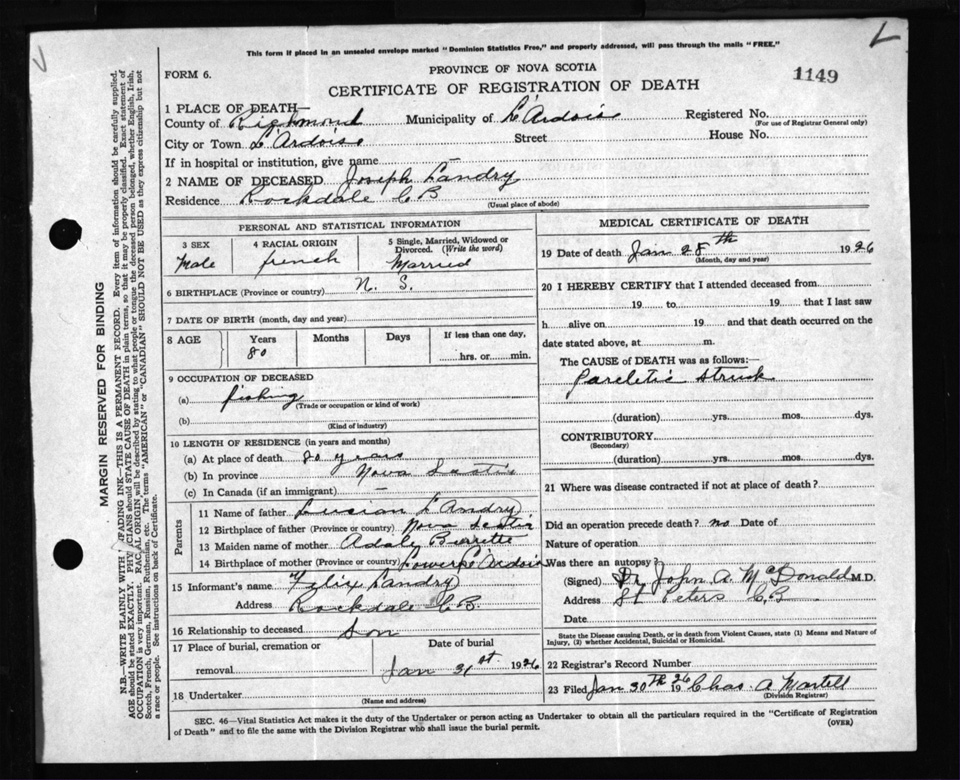 This form if placed in an unsealed envelope marked "Dominion Statistics Free," and properly addressed, will pass through the mails "FREE."
FORM 6.
PROVINCE OF NOVA SCOTIA
1149
CERTIFICATE OF REGISTRATION OF DEATH
1 PLACE OF DEATH—
County of Richmond Municipality of L'Ardoise Registered No.
(For use of Registrar General only)
City or Town L'Ardoise Street House No.
If in hospital or institution, give name
2 NAME OF DECEASED Joseph Landry
Residence Rockdale C B
(Usual place of abode)
PERSONAL AND STATISTICAL INFORMATION
3 SEX 4 RACIAL ORIGIN 5 Single, Married, Widowed or Divorced. (Write the word)
Male french Married
6 BIRTHPLACE (Province or country) N. S.
7 DATE OF BIRTH (month, day and year)
8 AGE Years Months Days If less than one day,
80 hrs. or min.
9 OCCUPATION OF DECEASED
(a) fishing
(Trade or occupation or kind of work)
(b)
(Kind of industry)
10 LENGTH OF RESIDENCE (in years and months)
(a) At place of death 20 years
(b) In province Nova Scotia
(c) In Canada (if an immigrant)
Parents
11 Name of father Lusian L'Andry
12 Birthplace of father (Province or country) Nova Scotia
13 Maiden name of mother Adaly
14 Birthplace of mother (Province or country) L'Ardoise
15 Informant's name Felix Landry
Address Rockdale C.B.
16 Relationship to deceased Son
17 Place of burial, cremation or Date of burial
removal Jan 31st 1926
18 Undertaker
(Name and address)
MEDICAL CERTIFICATE OF DEATH
19 Date of death Jan 28th 1926
(Month, day and year)
20 I HEREBY CERTIFY that I attended deceased from
19 to 19 that I last saw
h alive on 19 and that death occurred on the
date stated above, at m.
The CAUSE of DEATH was as follows:—
Pareletic Struck
(duration) yrs. mos. dys.
CONTRIBUTORY
(Secondary)
(duration) yrs. mos. dys.
21 Where was disease contracted if not at place of death?
Did an operation precede death? no Date of
Nature of operation
Was there an autopsy?
(Signed) Dr John A. McDonald M.D.
Address St Peters C B
Date
State the Disease causing Death, or in death from Violent Causes, state (1) Means and Nature of
Injury, (2) whether Accidental, Suicidal or Homicidal.
22 Registrar's Record Number
23 Filed Jan 30th 1926 Chas. A Martell
(Division Registrar)
SEC. 46—Vital Statistics Act makes it the duty of the Undertaker or person acting as Undertaker to obtain all the particulars required in the "Certificate of Registration
of Death" and to file the same with the Division Registrar who shall issue the burial permit.
(OVER)
MARGIN RESERVED FOR BINDING
N.B.—WRITE PLAINLY WITH UNFADING INK—THIS IS A PERMANENT RECORD. Every item of information should be carefully supplied.
AGE should be stated EXACTLY. PHYSICIANS should STATE CAUSE OF DEATH in plain terms, so that it may be properly classified. Exact statement of
OCCUPATION is very important. RACIAL ORIGIN will be described by stating to what people or tongue the deceased person belonged, whether English, Irish,
Scotch, French, German, Russian, Ruthenian, etc. The terms "AMERICAN" or "CANADIAN" SHOULD NOT BE USED as they express citizenship but not
a race or people. See instructions on back of Certificate.